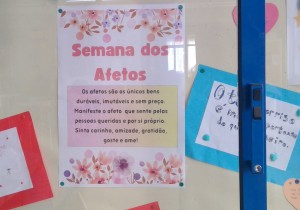 Semana dos
Afetos
Os afetos são os únicos bens
duráveis, imutáveis e sem preço.
Manifeste o afeto que sente pelas
pessoas queridas e por si próprio.
Sinta carinho, amizade, gratidão,
goste e ame!